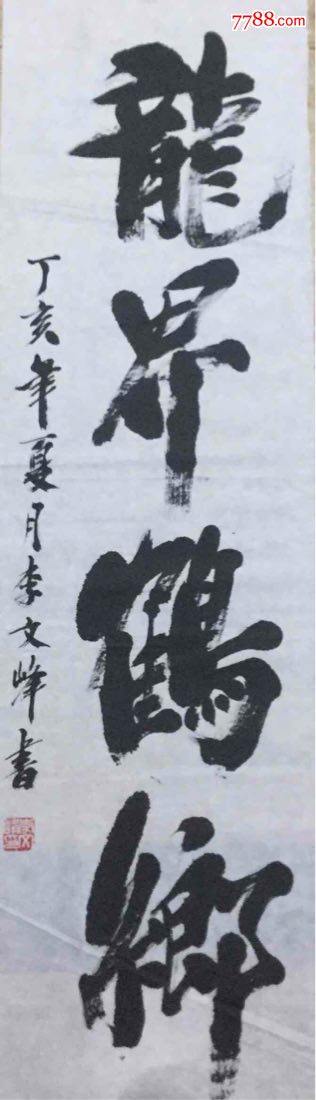 7788.com
龍界鶴鄉
丁亥年夏月李文峰書